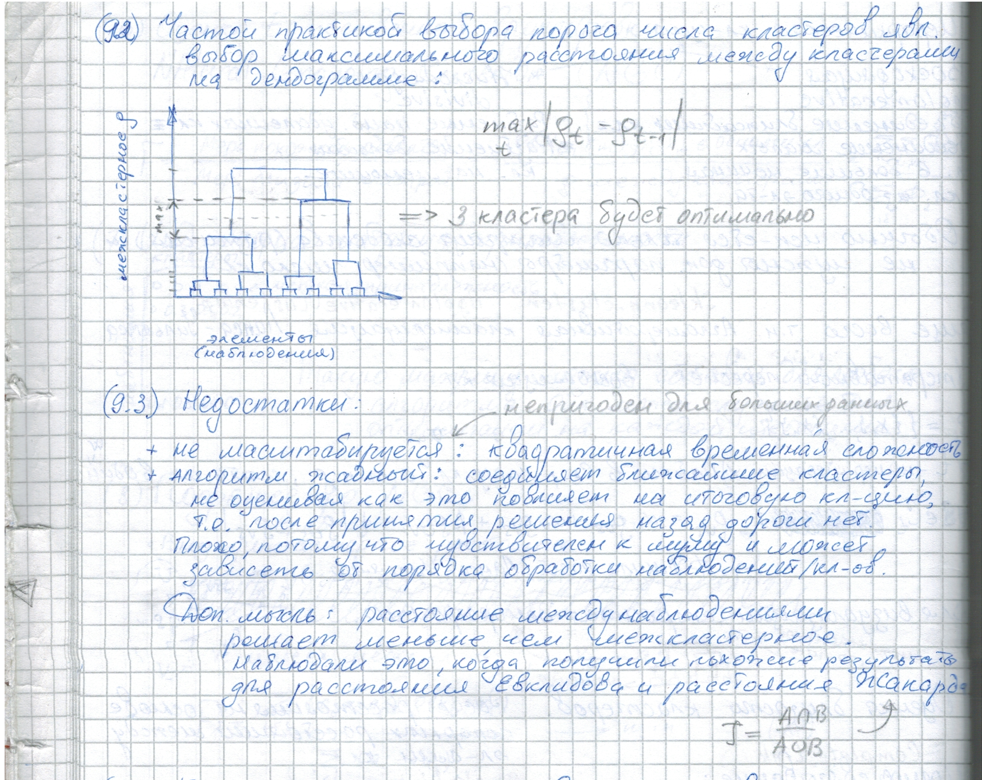 (9.2) Частой практикой выбора порога числа кластеров явл.
выбор максимального расстояния между кластерами
на дендограмме:
межкластерное ρ
max
max |ρt - ρt-1|
t
=> 3 кластера будет оптимально
элементы
(наблюдения)
(9.3) Недостатки:
непригоден для больших данных
+ не масштабируется: квадратичная временная сложность
+ Алгоритм жадный: соединяет ближайшие кластеры,
не оценивая как это повлияет на итоговую кл-цию,
т.о. после принятия решения назад дороги нет.
Плохо, потому что чувствителен к шуму и может
зависеть от порядка обработки наблюдений/кл-ов.
Доп. мысль: расстояние между наблюдениями
решает меньше чем межкластерное.
Наблюдали это, когда получили похожие результаты
для расстояния Евклидова и расстояния Жакарда
J = A∩B / A∪B